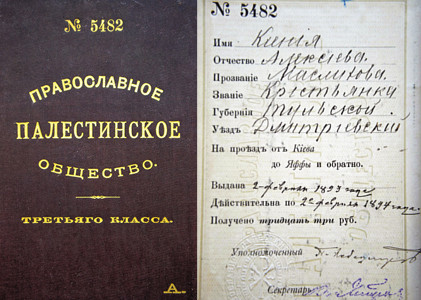 № 5482
ПРАВОСЛАВНОЕ
ПАЛЕСТИНСКОЕ
ОБЩЕСТВО.
ТРЕТЬЯГО КЛАССА.
№ 5482
Имя
Отчество Алексѣева
Прозваніе Маслихова
Званіе Крестьянку
Губерніи Тульской
Уѣздъ Дмитріевскій
На проѣздъ отъ Кіева
до Яффы и обратно.
Выдана 2 февраля 1893 года
Дѣйствительна по 2е февраля 1894 года
Получено тридцать три руб.
Уполномоченный
Секретарь